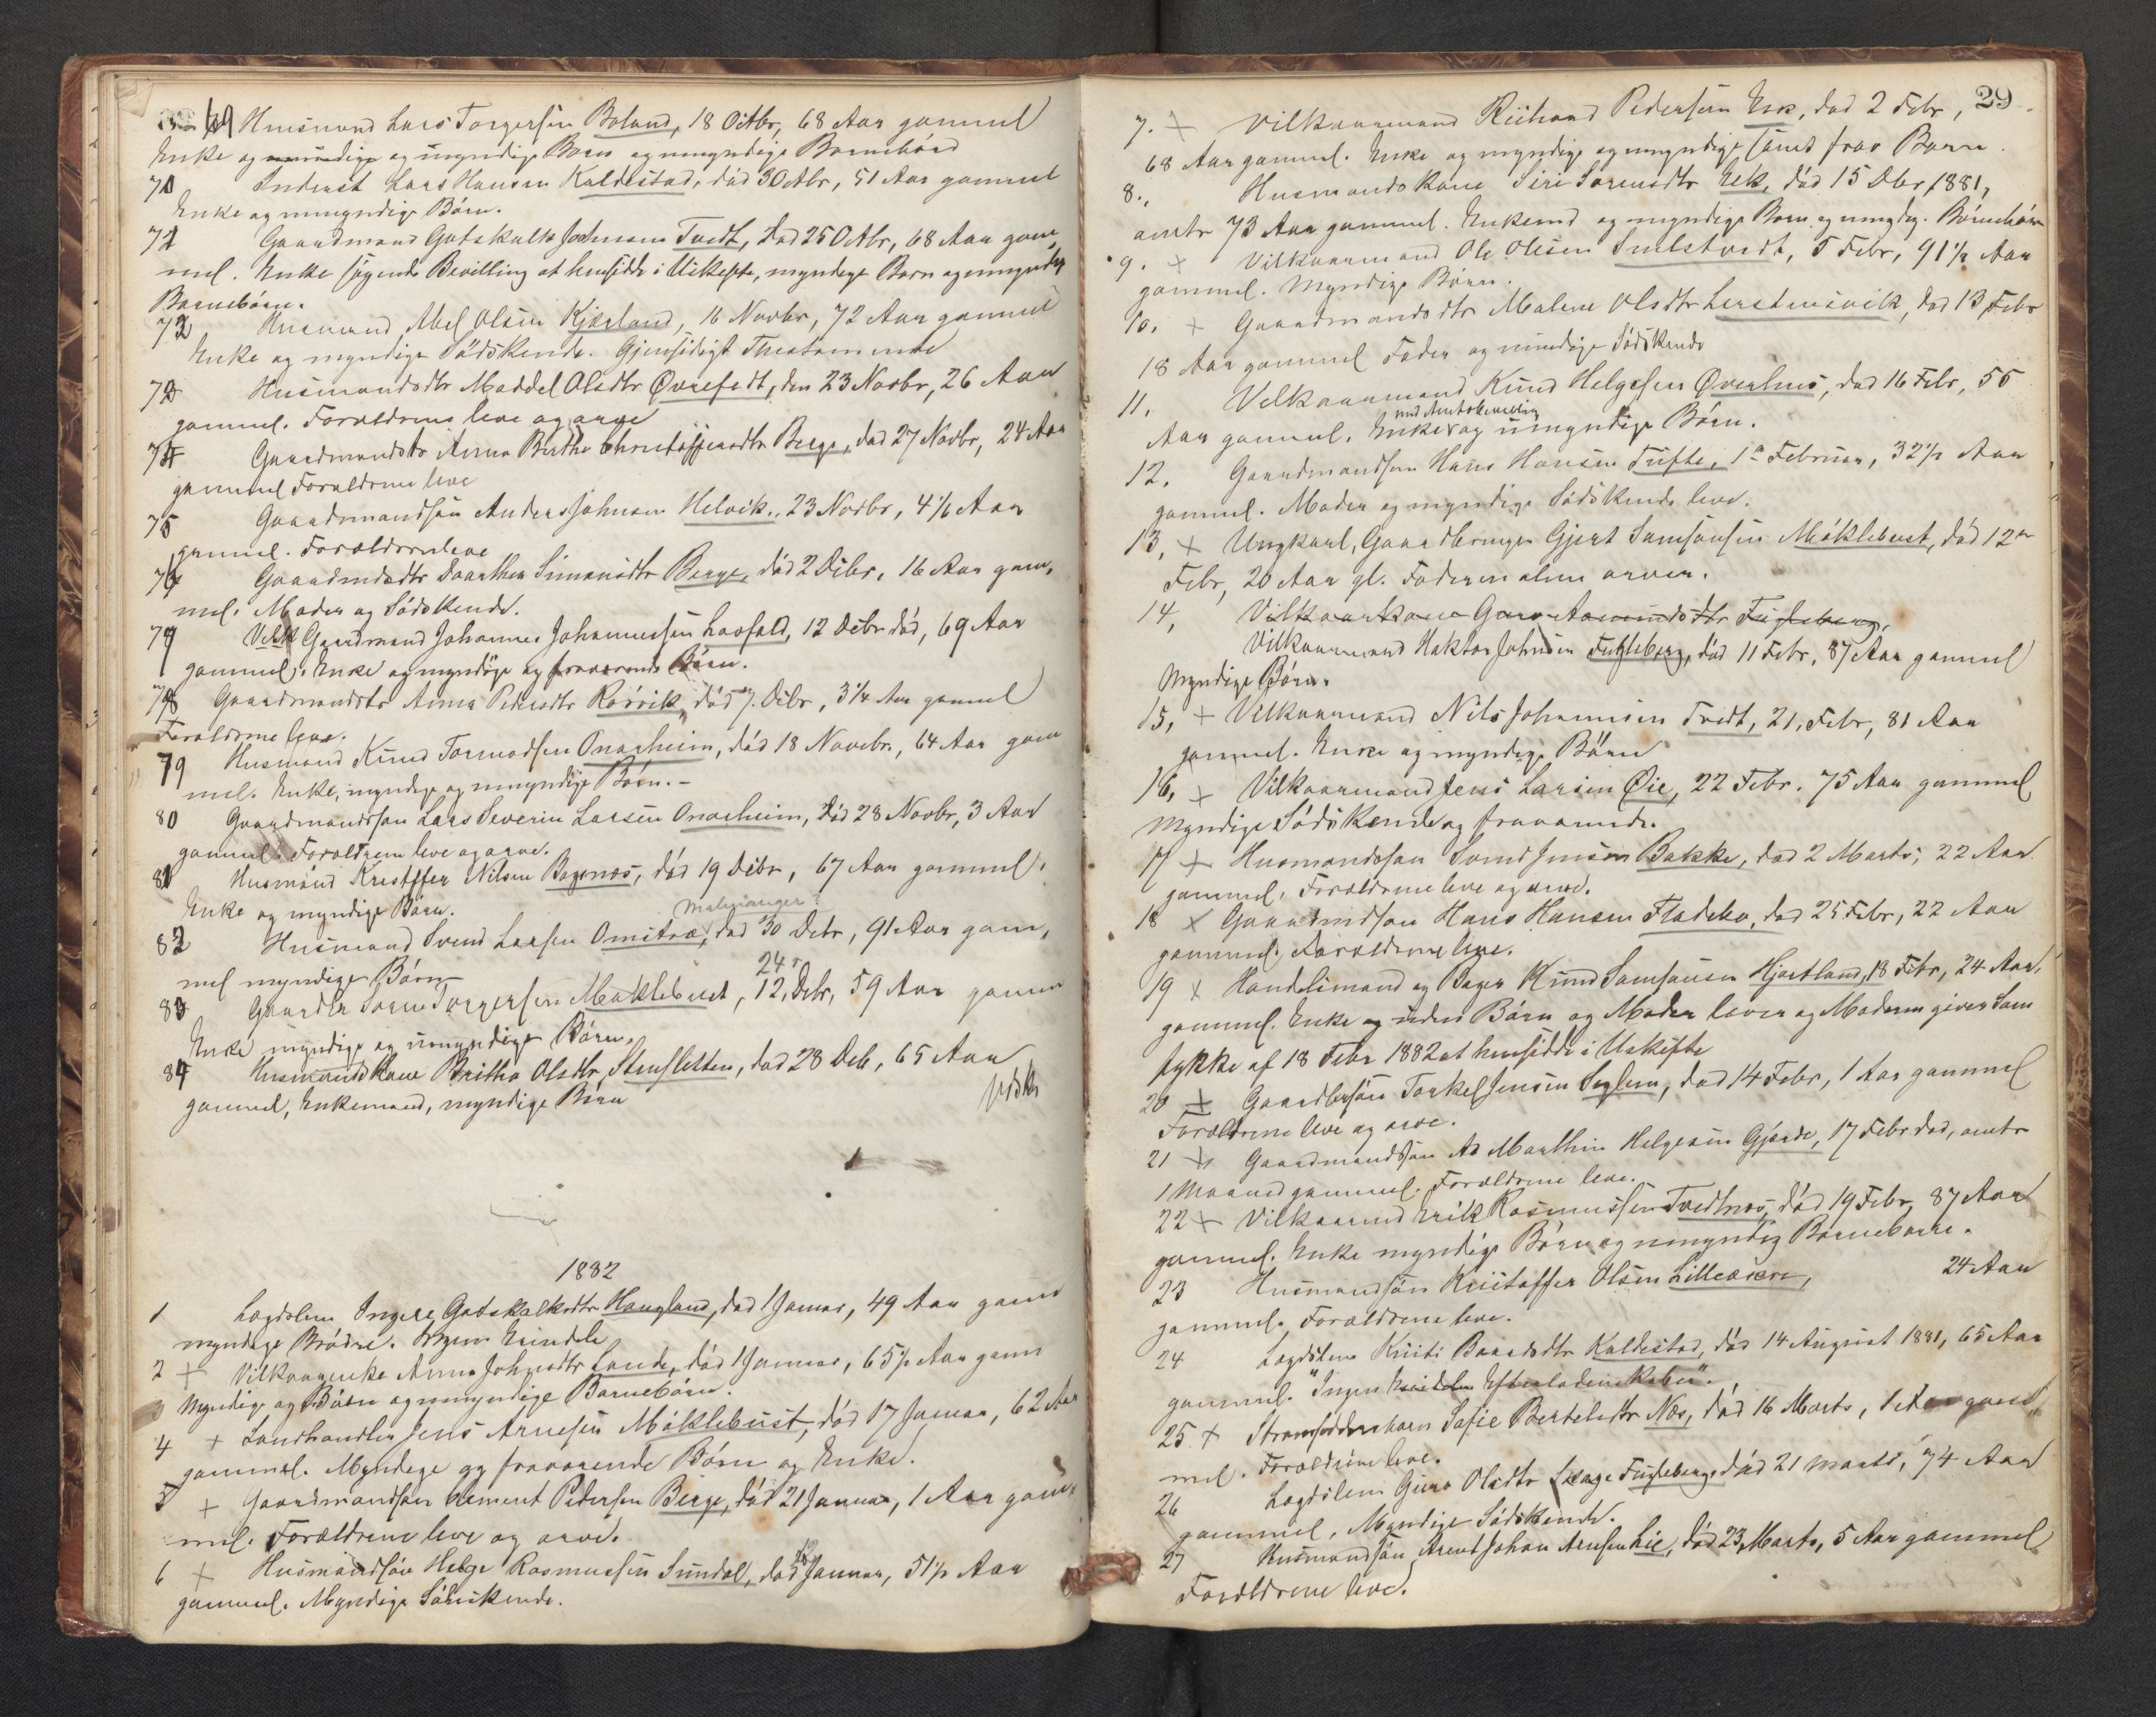 69 Husmand Lars Torgersen Boland, 18 Octbr, 68 Aar gammel
Enke og myndige og umyndige Børn og umyndige Børnebørn
70 Inderst Lars Hansen Kaldestad, død 30 Obr, 51 Aar gammel
Enke og umyndige Børn.
71 Gaardmand Gotskalk Johnsen Tvedt, død 25 Obr, 68 Aar gam,
mel. Enke søgende Bevilling at hensidde i Uskifte, myndige Børn og umyndige
Børnebørn.
72 Husmand Abel Olsen Kjærland, 16 Novbr, 72 Aar gammel
Enke og myndige Södskende. Gjensidigt Thestamente
73 Husmandsdtr Maddel Olsdtr Øvrefedt, den 23 Novbr, 26 Aar
gammel. Forældrene leve og arve
74 Gaardmandsdtr Anna Birthe Christoffersdtr Berge, død 27 Novbr, 24 Aar
gammel Forældrene leve
75 Gaardmandsøn Anders Johnsen Helvik, 23 Novbr, 4 1/6 Aar
gammel. Forældrene leve
76 Gaardmdsdtr Dorthea Simonsdtr Berge, død 2 Decbr, 16 Aar gam,
mel. Moder og Södskende.
77 Gaardmand Johannes Johannessen Laofald, 12 Decbr død, 69 Aar
gammel. Enke og myndige og fraværende Børn.
78 Gaardmandsdtr Anna Pedersdtr Rørvik, død 7. Decbr, 3 1/4 Aar gammel
Forældrene leve.
79 Husmand Knud Tormodsen Onarheim, død 18 Novebr, 64 Aar gam
mel. Enke, myndige og umyndige Børn.-
80 Gaardmandssøn Lars Severin Larsen Onarheim, død 28 Novbr, 3 Aar
gammel. Forældrene leve og arve.
81 Husmand Kristoffer Nilsen Bogsnæs, død 19 Decbr, 67 Aar gammel.
Enke og myndige Børn.
Malmanger?
82 Husmand Svend Larsen Omstræ, død 30 Debr, 91 Aar gam,
mel myndige Børn
24r
83 Torgersen Møklebust, 12, Debr, 59 Aar gamm
Enke myndige og umyndige Børn.
84 Husmandskone Britha Olsdtr Stensletten, død 28 Deb, 65 Aar
gammel, Enkemand, myndige Børn
1882
1 Lægdslem Ingere Gotskalksdtr Haugland, død 1 Januar, 49 Aar gaml
myndige Brødre. Ingen Eiendele
2 + Vilkaarenke Anna Johnsdtr Lande, død 1 Januar, 65 1/2 Aar gaml
3 Myndige og Børn og umyndige Børnebørn.
4 + Landhandler Jens Arnesen Møklebust, død 17 Januar, 62 Aar
gammel. Myndige og fraværende Børn og Enke.
5 + Gaardmandsøn Clement Pedersen Berge, død 21 Januar, 1 Aar gam,
mel. Forældrene leve og arve.
6 + Husmandsøn Helge Rasmussen Sundal, død 12 Januar, 51 1/2 Aar
gammel. Myndige Södskende.
29
7. + Vilkaarmand Richard Pedersen Eek, død 2 Febr,
68 Aar gammel. Enke og myndige og umyndige samt frav Børn.
8., Husmandskone Siri Sørensdtr Eek, død 15 Dbr 1881,
omtr 73 Aar gammel. Enkemd og myndige Børn og umyndig. Børnebørn
9. + Vilkaarmand Ole Olsen Smelstvedt, 5 Febr, 91 1/2 Aar
gammel. Myndige Børn.
10. + Gaardmandsdtr Malene Olsdtr, død 13 Febr
18 Aar gammel Fader og myndige Södskende
11. Vilkaarmand Knud Helgesen Øverhus, død 16 Febr, 55
med Amtsbevilling
Aar gammel. Enke og umyndige Børn.
12. Gaardmandsøn Hans Hansen Tufte, 1ste Februar, 32 1/2 Aar
gammel. Moder og myndige Södskende leve.
13. + Ungkarl, Gaardbruger Gjert Samsonsen Møklebust, død 12te
Febr, 20 Aar gl. Faderen alene arver.
14, Vilkaarkone Guro Aamundsdtr Fugleberg.
Vilkaarmand Haktor Johnsen Fugleberg, død 11 Febr, 87 Aar gammel
Myndige Børn.
15, + Vilkaarmand Nils Johannesen Tvedt, 21. Febr, 81 Aar
gammel. Enke og myndige Børn
16, + Vilkaarmand Jens Larsen Øie, 22 Febr. 75 Aar gammel
Myndige Södskende og fraværende.
17 + Husmandssøn Svend Jensen Bakke, død 2 Marts, 22 Aar
gammel, Forældrene leve og arve.
18 x Gaardmdsøn Hans Hansen Fladebø, død 25 Febr, 22 Aar
gammel. Forældrene leve.
19 x Handelsmand og Bager Knud Samsonsen Hjortland, 18 Febr, 24 Aar,
gammel. Enke og uden Børn og Moder lever og Moderen giver Sam
tykke af 18 Febr 1882 at hensidde i Uskifte
20 + Gaardbrsøn Torkel Jensen Seglem, død 14 Febr, 1 Aar gammel
Forældrene leve og arve.
21 + Gaardmandsøn Marthin Helgesen Gjærde, 17 Febr død, omtr
1 Maaned gammel. Forældrene leve.
22 + Vilkaarmd Erik Rasmussen Tvedtnæs, død 19 Febr, 87 Aar
gammel. Enke myndige Børn og umyndig Børnebørn.
23 Husmandsøn Kristoffer Olsen Lilleøren, 24 Aar
gammel, Forældrene leve.
24 Lægdslem Kristi Baardsdtr Kaldestad, død 14 August 1881, 65 Aar
gammel. "Ingen Eiendele Efterladenskaber".
25 + Strandsidderbarn Sofie Bertelsdtr Næs, død 16 Marts, 1 Aar gam,,
mel. Forældrene leve.
26 Lægdslem Guro Olsdtr Fugleberg, død 21 Marts, 74 Aar
gammel, Myndige Södskende.
27 Husmandsøn Arent Johan Arnesen Lie, død 23, Marts, 5 Aar gammel
Forældrene leve.